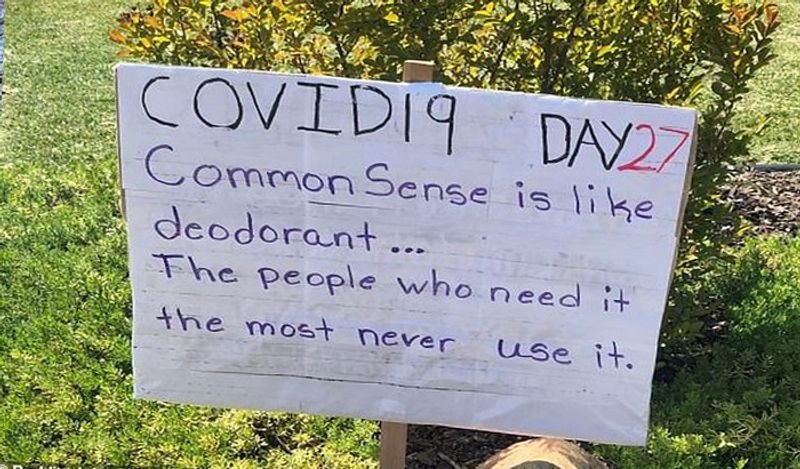 COVID19 DAY27
Common Sense is like
deodorant...
The people who need it
the most never use it.